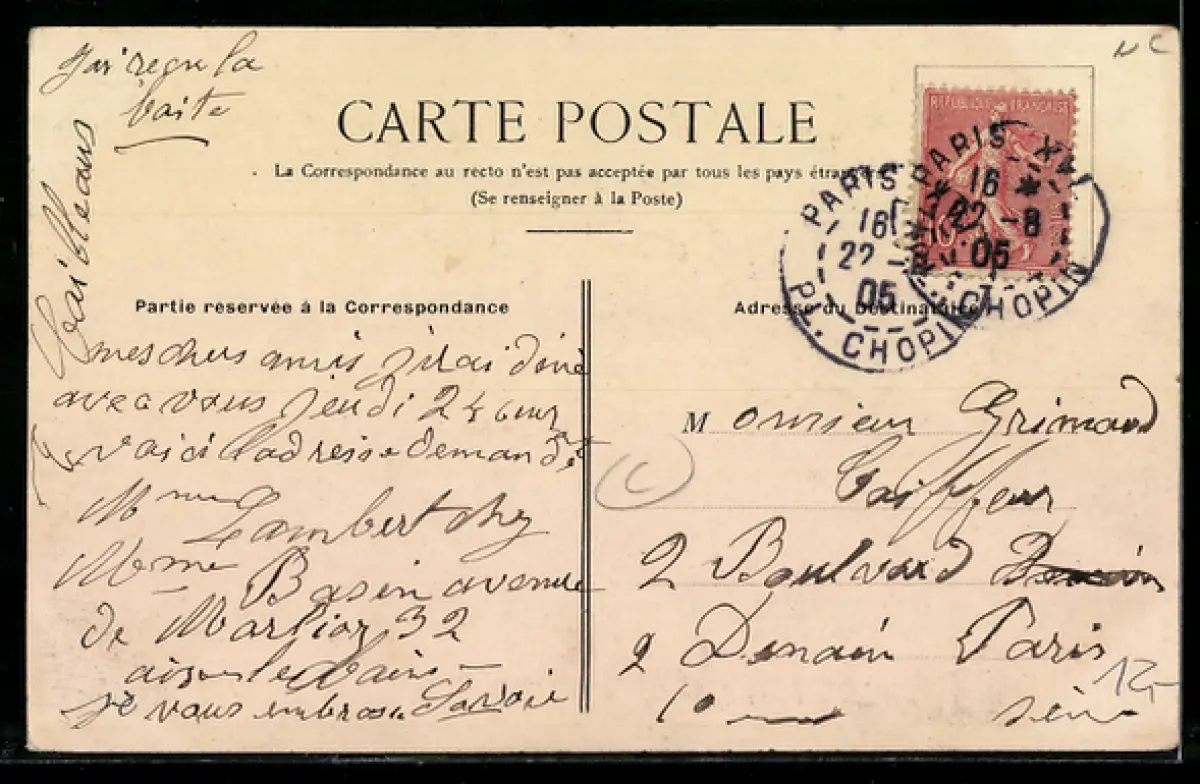 J'ai reçu la
boite
CARTE POSTALE
La Correspondance au recto n'est pas acceptée par tous les pays étrangers
(Se renseigner à la Poste)
REPUBLIQUE FRANÇAISE
PARIS XVI
16
22 -8
05
PL. CHOPIN
PARIS
16
22 -
05
PL. CHOPIN
Partie reservée à la Correspondance
Adresse du Destinataire
mes chers amis j'irai diné
avec vous jeudi 24 cour
voici l'adresse demandé
Mme Lambert chez
Mme Basin avenue
de Marlioz 32
aix les bains
je vous embrasse Savoie
Monsieur Grimaud
Coiffeur
2 Boulvard
2 Denain Paris
10
seine
12-